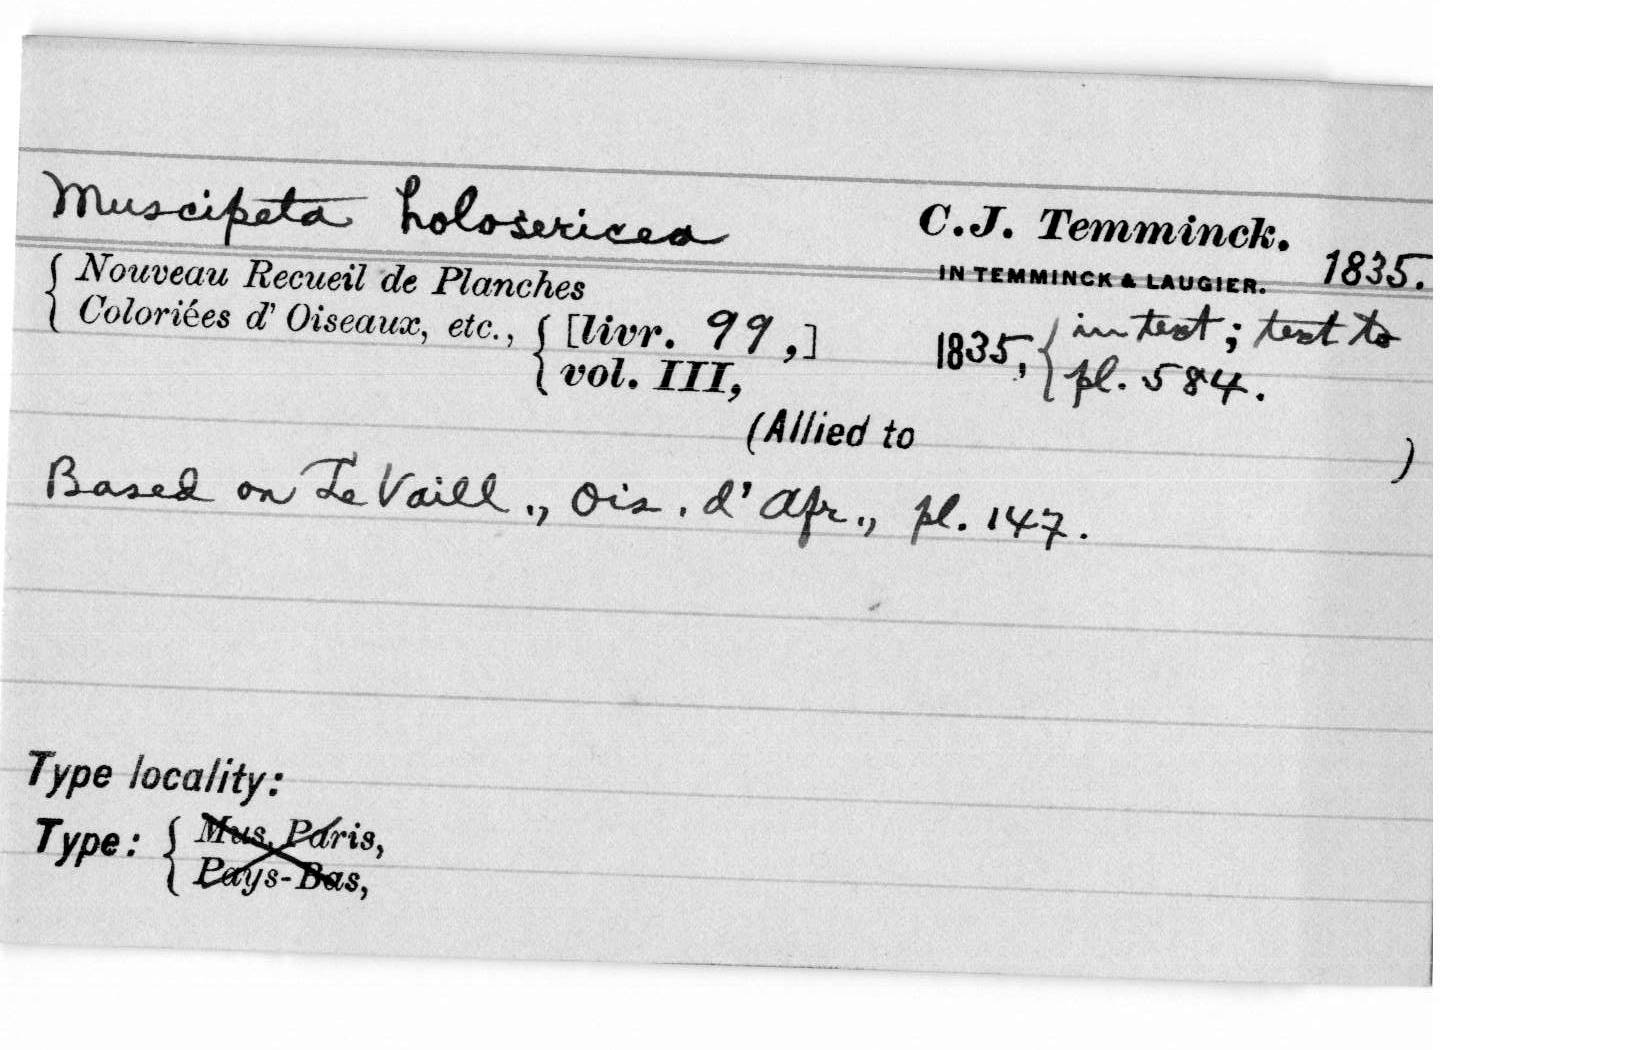 Muscipeta holosericea C.J. Temminck.
IN TEMMINCK & LAUGIER. 1835.
{ Nouveau Recueil de Planches
Coloriées d' Oiseaux, etc., { [livr. 99,] 1835, { in text; text to
vol. III, pl. 584.
(Allied to )
Based on Le Vaill., Ois. d' Afr., pl. 147.
Type locality:
Type: { Mus. Paris,
Pays-Bas,